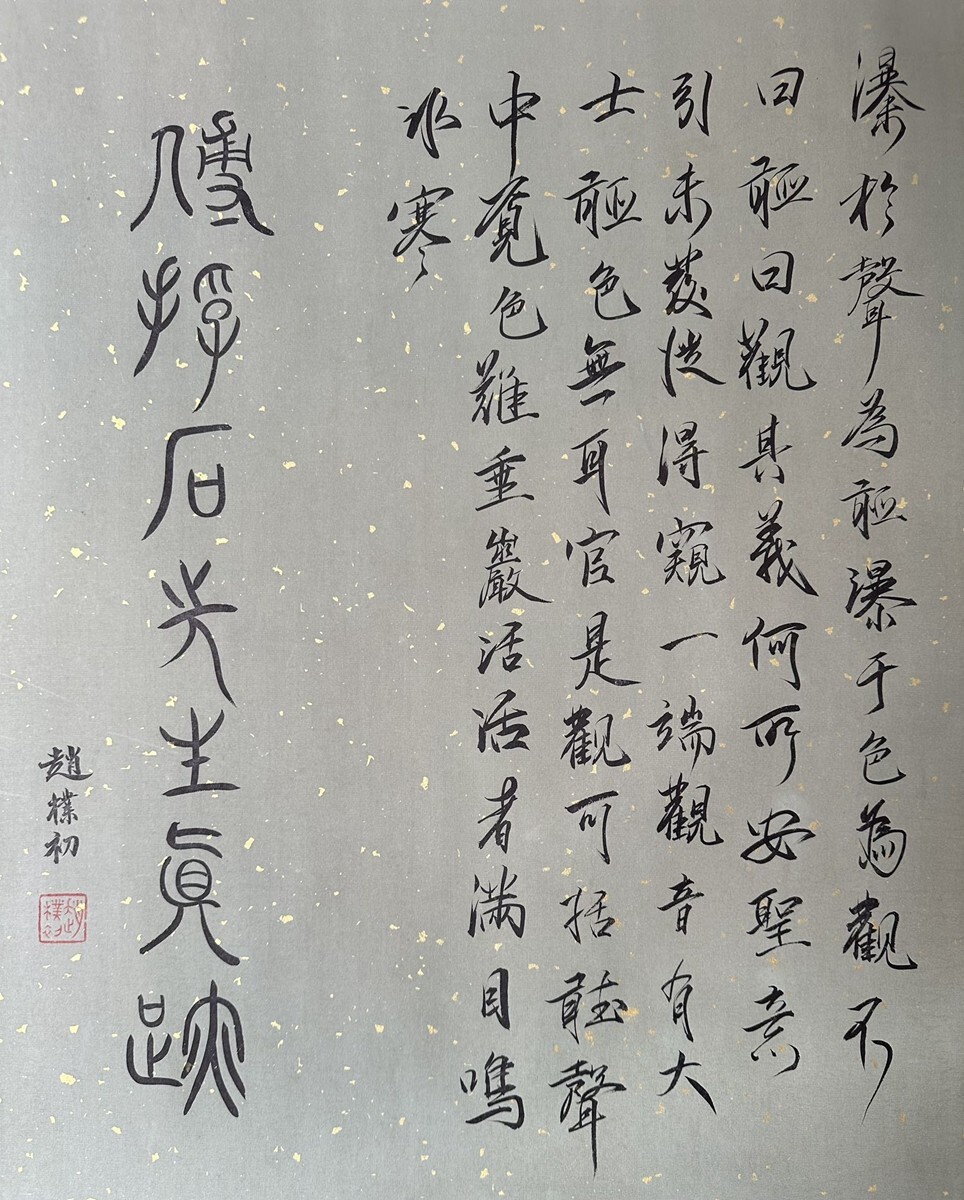 瀑於聲為聽瀑于色為觀不
曰聽曰觀其義何所安聖意
引未發從得窺一端觀音有大
士聽色無耳官是觀可括聽聲
中覓色難垂巖活活者滿目鳴
冰寒
傅抱石先生真跡
趙樸初
趙樸初